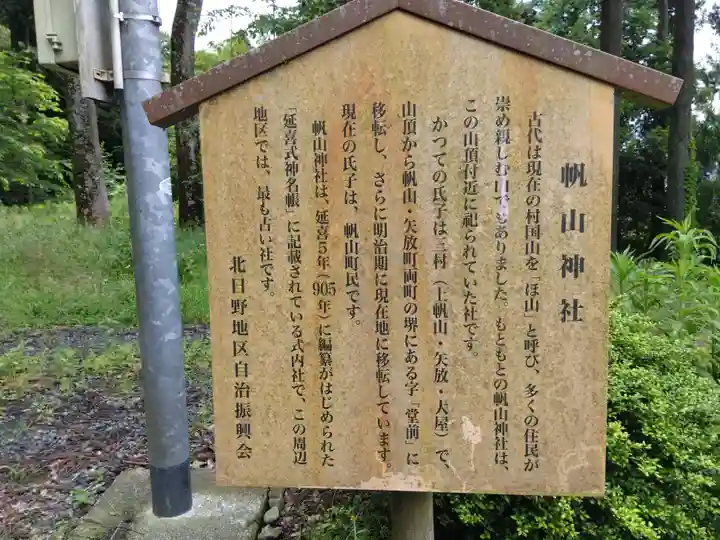 帆山神社
古代は現在の村国山を「ほ山」と呼び、多くの住民が
崇め親しむ山でもありました。もともとの帆山神社は、
この山頂付近に祀られていた社です。
かつての氏子は三村（上帆山・矢放・大屋）で、
山頂から帆山・矢放町両町の堺にある字「堂前」に
移転し、さらに明治期に現在地に移転しています。
現在の氏子は、帆山町民です。
帆山神社は、延喜5年（905年）に編纂がはじめられた
「延喜式神名帳」に記載されている式内社で、この周辺
地区では、最も古い社です。
北日野地区自治振興会